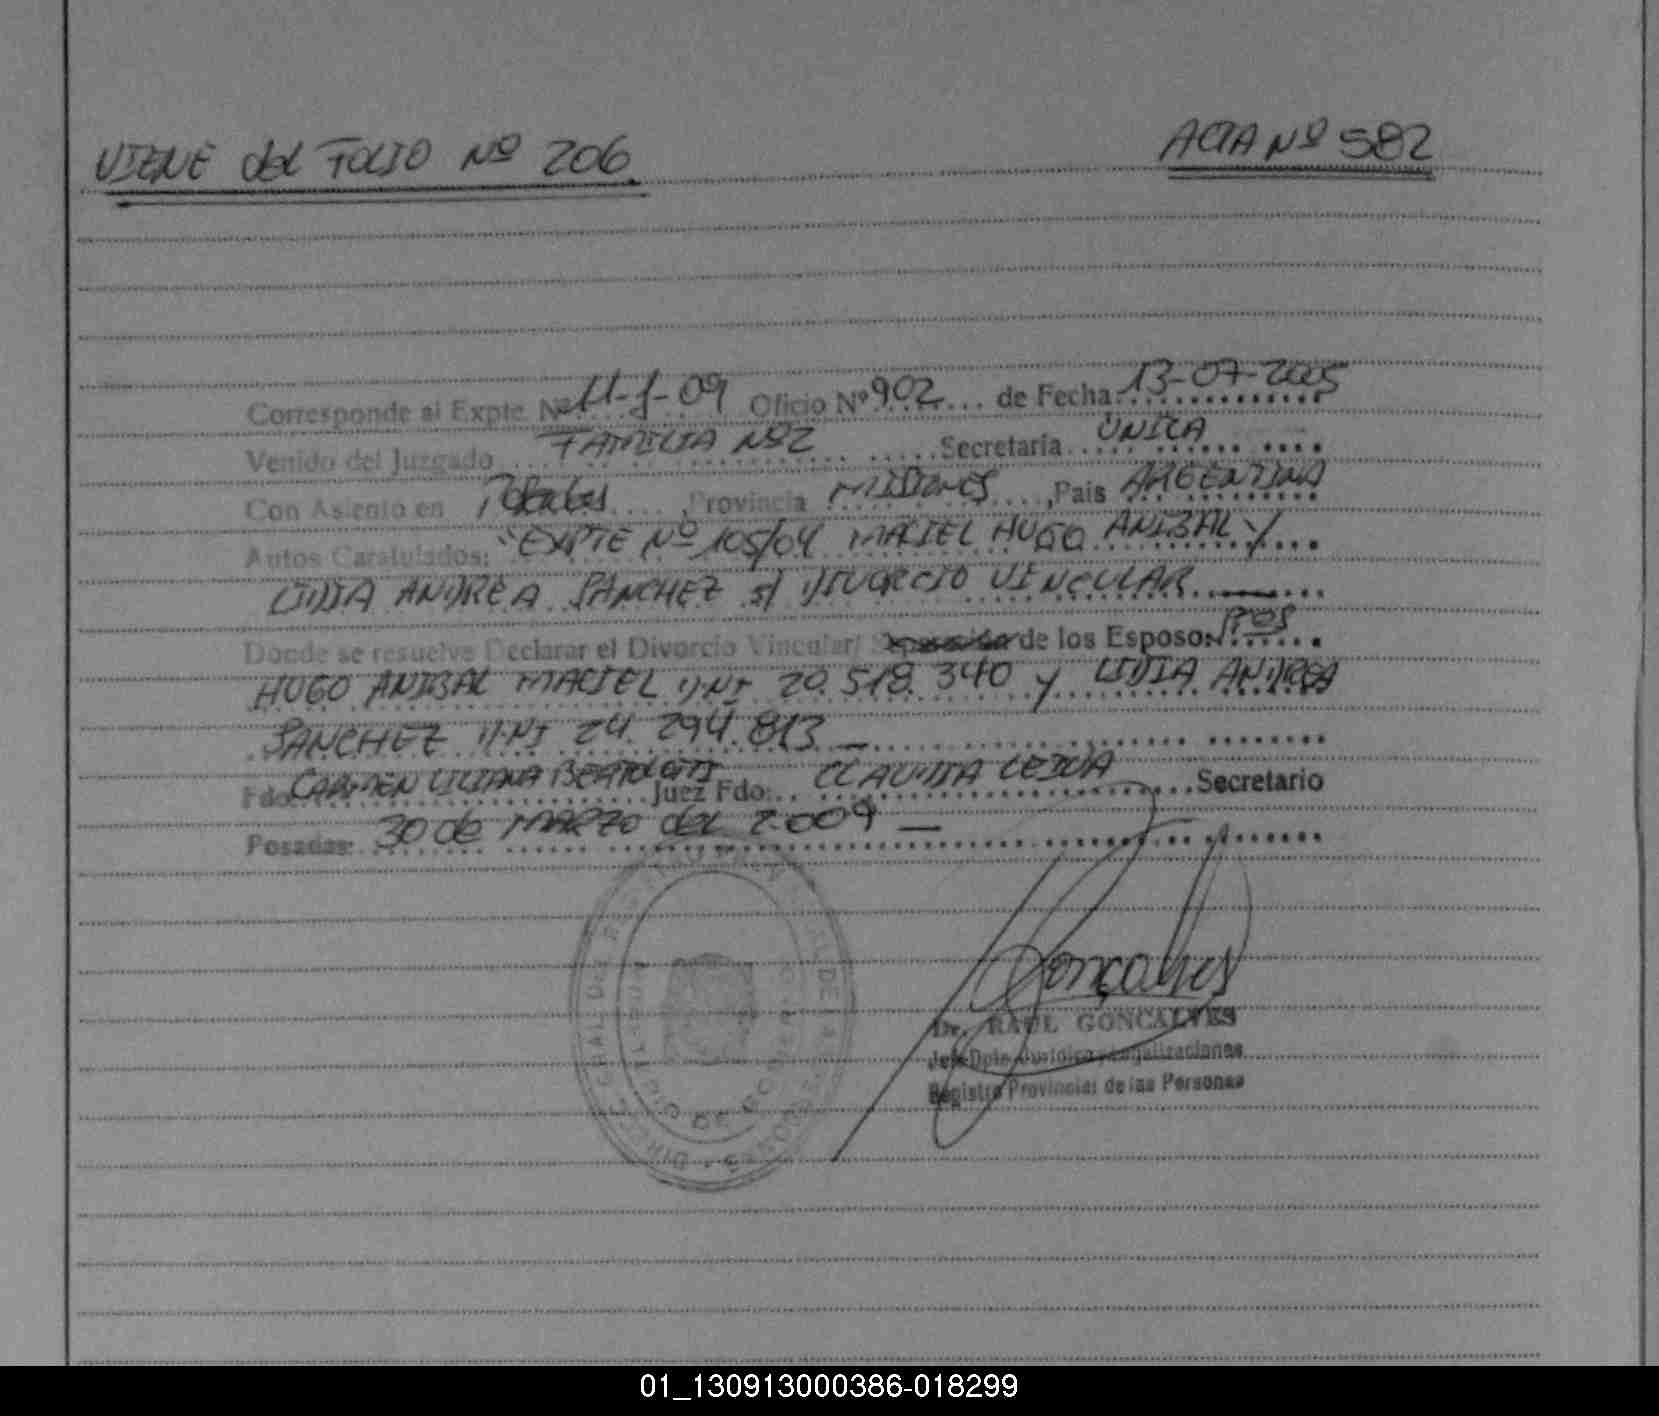 VIENE del FOLIO Nº 206
ACTA Nº 582
Corresponde al Expte Nº 11-J-09 Oficio Nº 902 de Fecha 13-07-2005
Venido del Juzgado FAMILIA Nº 2 Secretaría UNICA
Con Asiento en Posadas, Provincia MISIONES, País ARGENTINA
Autos Caratulados: "EXPTE Nº 105/04 MACIEL HUGO ANIBAL Y
LIDIA ANDREA SANCHEZ s/ DIVORCIO VINCULAR
Donde se resuelve Declarar el Divorcio Vincular/ Separación de los Esposos
HUGO ANIBAL MACIEL DNI 20.518.340 y LIDIA ANDREA
SANCHEZ DNI 24.294.813
Fdo. CARMEN LILIANA Juez Fdo: CLAUDIA Secretario
Posadas: 30 de MARZO del 2.009
Gonçalves
Dr. RAUL GONCALVES
Jefe Dpto Jurídico Legalizaciones
Registro Provincial de las Personas
01_130913000386-018299